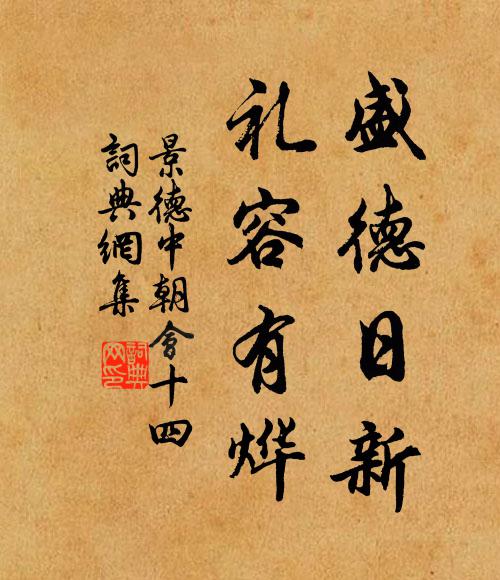 盛德日新
礼容有烨
景德中朝會十四
詞典網集
詞典
网印